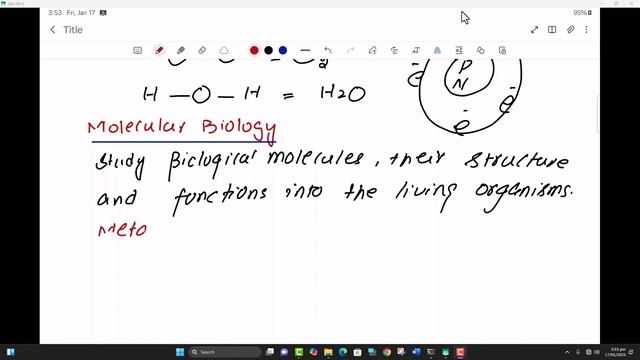 3:53 Fri, Jan 17
95%
Title
H — O — H = H2O
P
N
e
e
e
Molecular Biology
Study Biological molecules, their structure
and functions into the living organisms.
Meto
Search
3:53 pm
17/01/2025